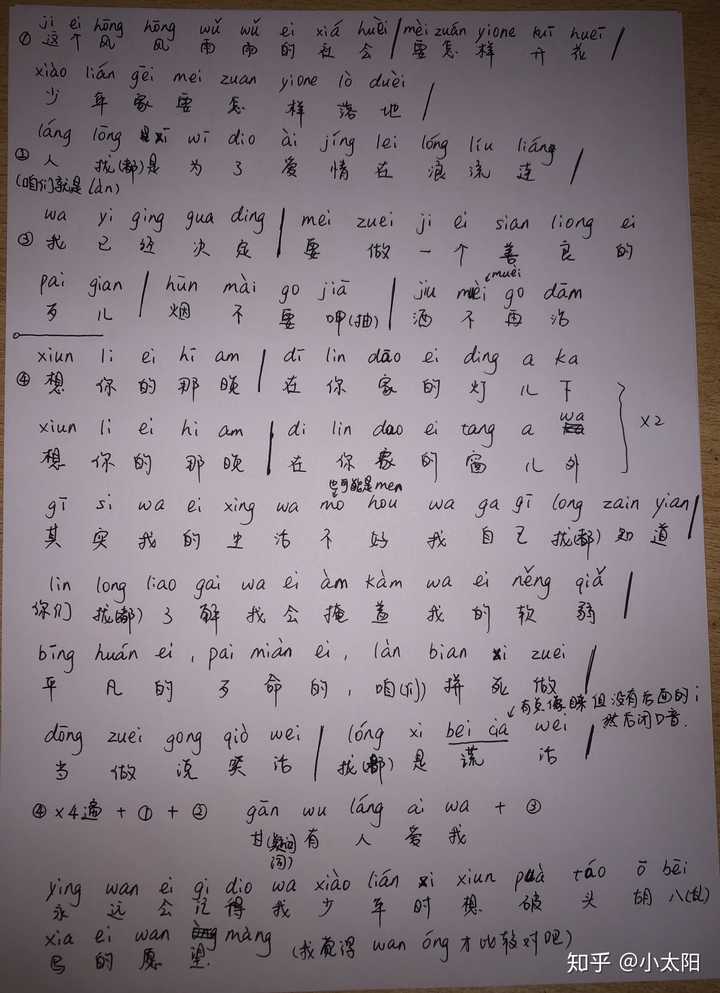 ji ei hōng hōng wǔ wǔ ei xiá huèi / mèi zuán yione kuī huēi /
① 这个风风雨雨的社会 要怎样开花
xiào lián gēi mei zuan yione lò duèi /
少年家要怎样落地
láng lōng xī wī dio ài jíng lei lóng líu liáng /
② 人拢(都)是为了爱情在浪流连
(咱们就是 làn)
wa yi ging gua ding / mei zuei ji ei sian liong ei
③ 我已经决定 要做一个善良的
muèi
pai gian / hūn mài go jiā / jiu go dām
歹儿 烟不要呷(抽) 酒不再沾
xiun li ei hī am / dī lin dāo ei ding a ka
④ 想你的那晚 在你家的灯儿下
xiun li ei hi am / di lin dao ei tang a wa
想你的那晚 在你家的窗儿外
×2
也可能是men
gī si wa ei xing wa mo hou wa ga gī long zain yian /
其实我的生活不好我自己拢(都)知道
lin long liao gai wa ei àm kàm wa ei něng qiǎ /
你们拢(都)了解我会掩盖我的软弱
bīng huán ei , pai miàn ei , làn bian xi zuei /
平凡的歹命的,咱(们)拼死做
有点像睐但没有后面的i
然后闭口音.
dōng zuei gong qiò wei / lóng xi bei cia wei /
当做说笑话 拢(都)是谎话
④×4遍+①+② gān wu láng ai wa + ③
甘(疑问词)有人爱我
ying wan ei gi dio wa xiào lián xi xiun puà táo ō bēi
永远会记得我少年时想破头胡八(乱)
xia ei wan màng (我觉得 wan óng 才比较对吧)
写的愿望.
知乎 @小太阳